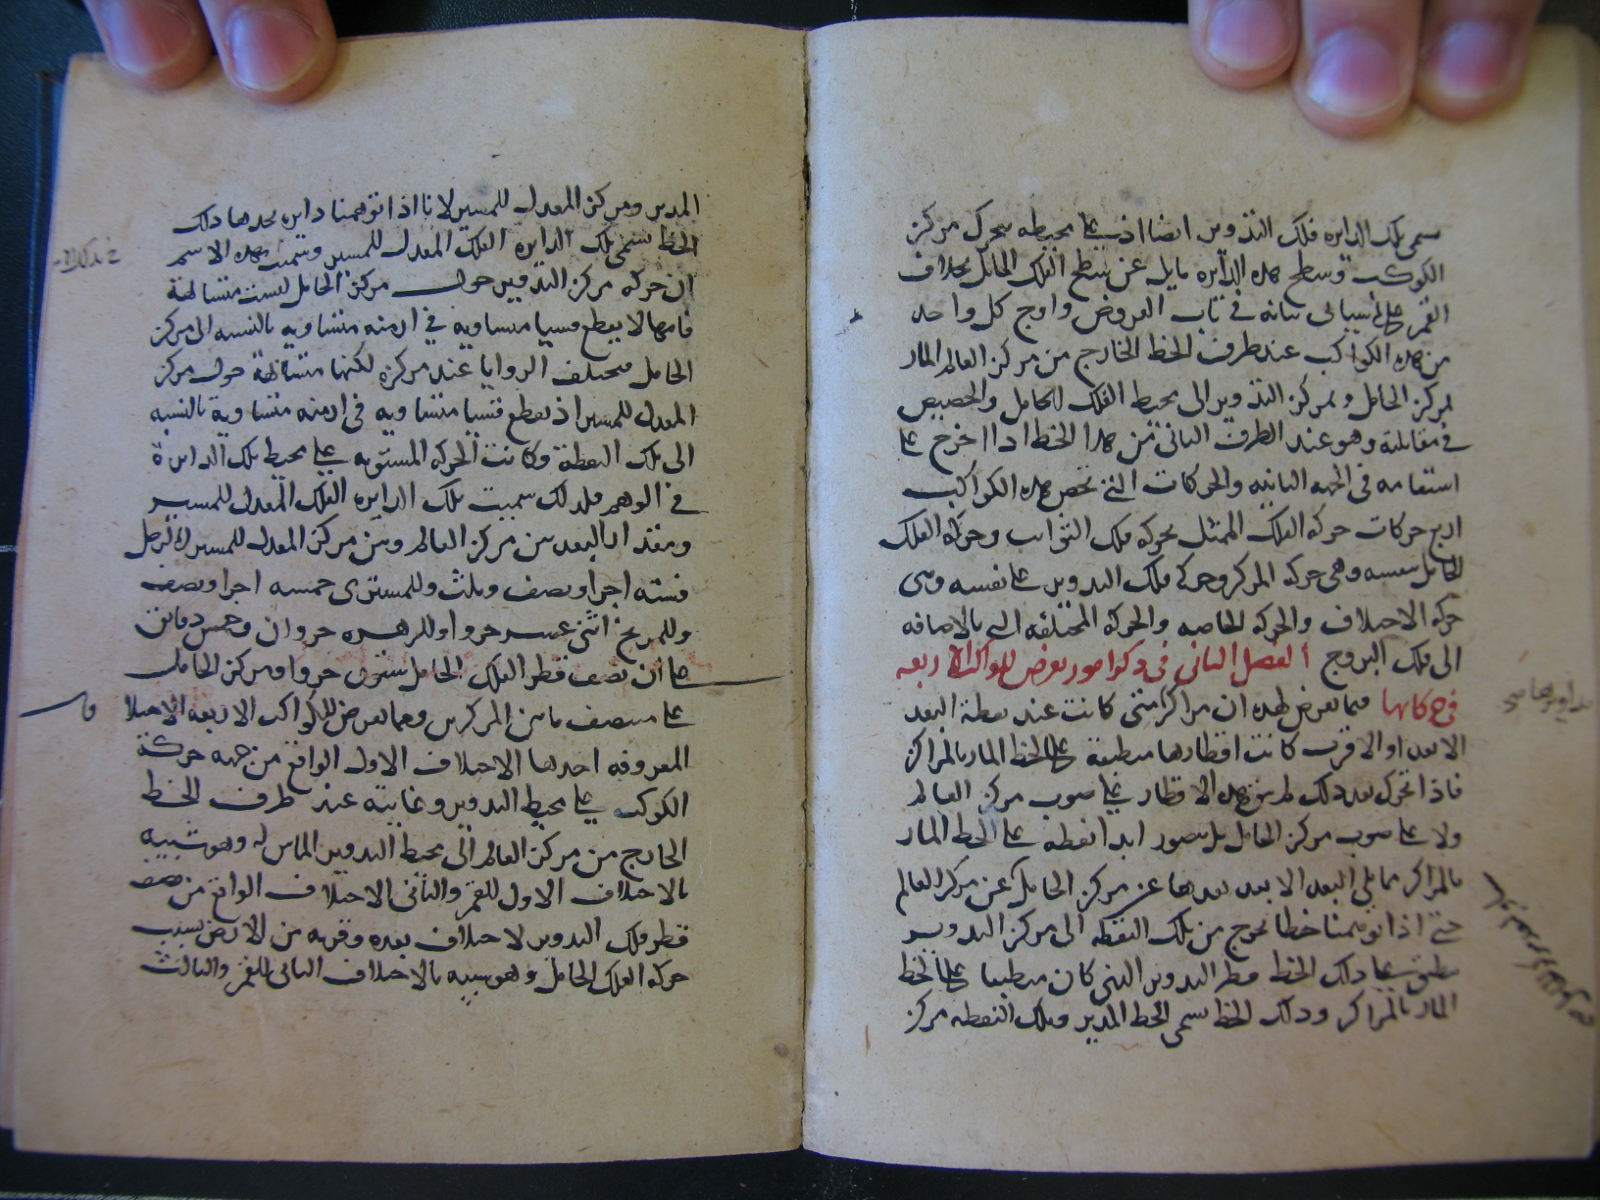 يسمى تلك الدايره فلك التدوير ايضا اذ على محيطه يتحرك مركز
الكوكب وسطح هذه الدايره مايل عن سطح الفلك الحامل بخلاف
القمر على ما سياتى بيانه فى باب العروض واوج كل واحد
من هذه الكواكب عند طرف الخط الخارج من مركز العالم المار
بمركز الحامل وبمركز التدوير الى محيط الفلك الحامل والحضيض
فى مقابلته وهو عند الطرف الثانى من هذا الخط اذا اخرج على
استقامه فى الجهه الثانيه والحركات التى تخص هذه الكواكب
اربع حركات حركه الفلك الممثل بحركه فلك الثوابت وحركه الفلك
الحامل بنفسه وهى حركه المركز وحركة فلك التدوير على نفسه وهى
حركه الاختلاف والحركه الخاصه والحركه المختلفه التى بالاضافه
الى فلك البروج الفصل الثانى فى ذكر امور تعرض للكواكب الاربعه
فى حركاتها فما تعرض لهذه ان مراكز متى كانت عند نقطة البعد
الابعد او الاقرب كانت اقطارها منطبقة على الخط المار بالمراكز
فاذا تحرك بعد ذلك لم يبق هذه الاقطار على صوب مركز العالم
ولا على صوب مركز الحامل بل يتصور ابدا نقطه على الخط المار
بالمراكز مما يلى البعد الابعد بعدها عن مركز الحامل كبعد مركز العالم
حتى اذا توهمنا خطا يخرج من تلك النقطه الى مركز التدوير
ينطبق على ذلك الخط قطر التدوير الذى كان منطبقا على الخط
المار بالمراكز وذلك الخط يسمى الخط المدير وتلك النقطه مركز
المدير ومركز المعدل للمسير لانا اذا توهمنا دايره يحدها ذلك
الخط يسمى تلك الدايره الفلك المعدل للمسير وسميت بهذه الاسم
ان حركه مركز التدوير حول مركز الحامل ليست متشابهة
فانها لا يقطع قسيا متساويه فى ازمنه متساويه بالنسبه الى مركز
الحامل فتختلف الزوايا عند مركزه لكنها متشابهة حول مركز
المعدل للمسير اذ يقطع قسيا متساويه فى ازمنه متساوية بالنسبه
الى تلك النقطة وكانت الحركه المستويه على محيط تلك الدايرة
فى الوهم فلذلك سميت تلك الدايره الفلك المعدل للمسير
ومقدار البعد بين مركز العالم وبين مركز المعدل للمسير لزحل
فسته اجزا ونصف وثلث وللمشترى خمسه اجزا ونصف
وللمريخ اثنى عشر جزوا وللزهره جزوان وخمس دقائق
على ان نصف قطر الفلك الحامل ستون جزوا ومركز الحامل
على منتصف ما بين المركزين ومما تعرض للكواكب الاربعه الاختلافا
المعروفه احدها الاختلاف الاول الواقع من جهه حركة
الكوكب على محيط التدوير وغايته عند طرف الخط
الخارج من مركز العالم الى محيط التدوير المماس له وهو شبيه
بالاختلاف الاول للقمر والثانى الاختلاف الواقع من نصف
قطر فلك التدوير لاختلاف بعده وقربه من الارض بسبب
حركه الفلك الحامل وهو شبيه بالاختلاف الثانى للقمر والثالث